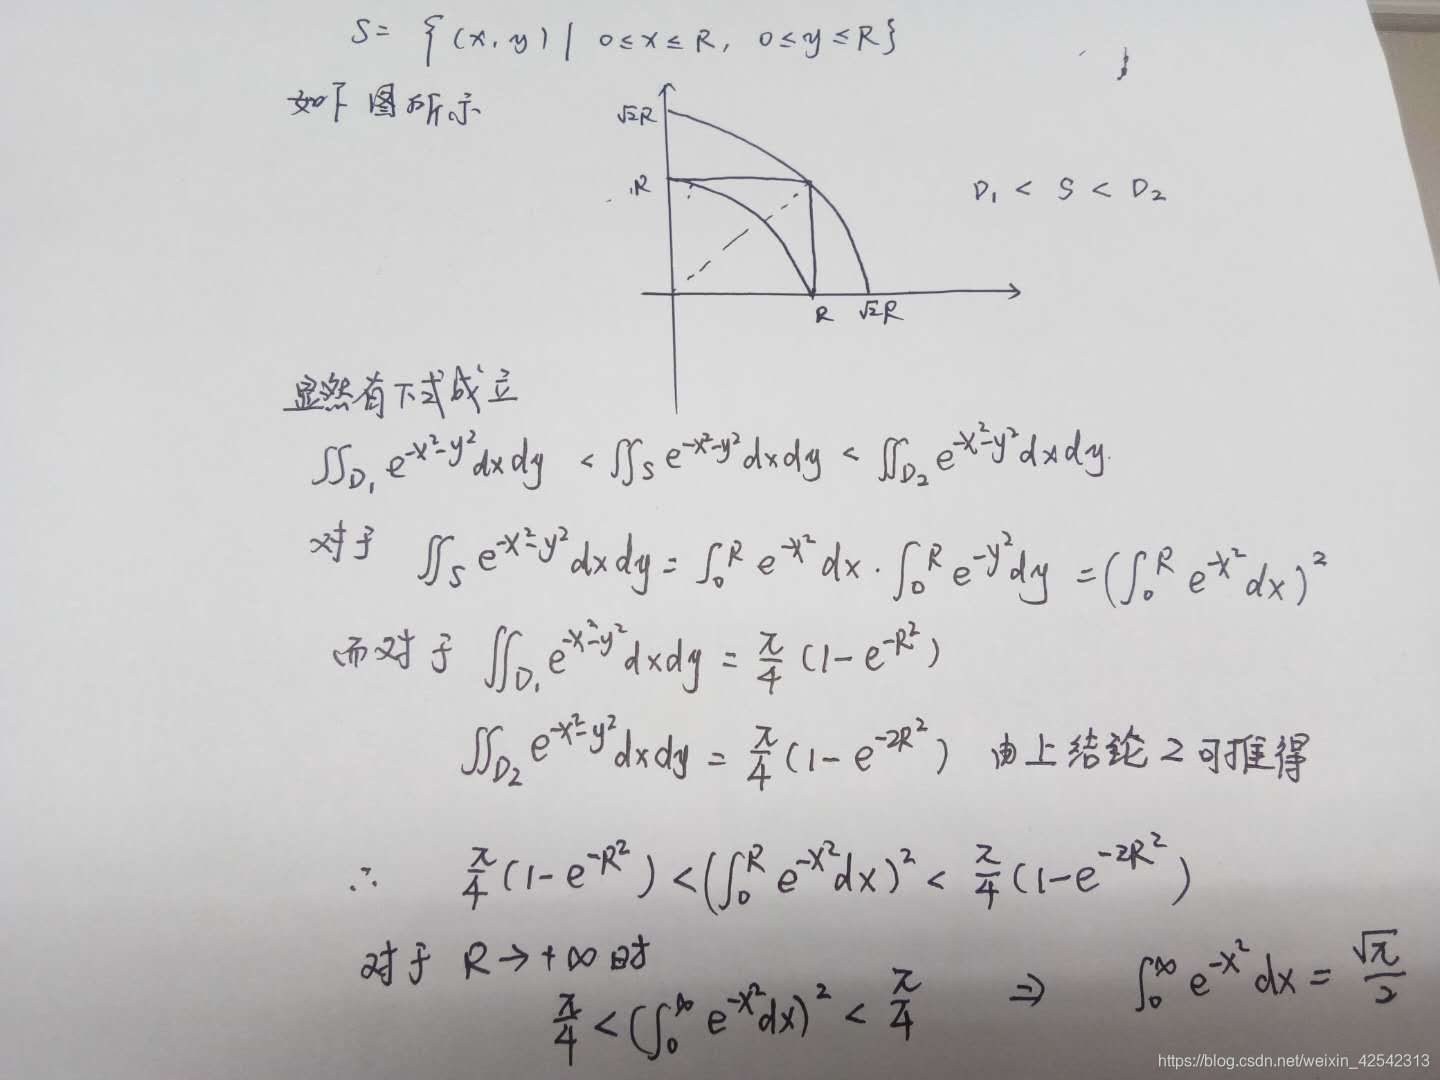 S = { (x, y) | 0≤x≤R, 0≤y≤R}
如下图所示
√2R
R
D₁ < S < D₂
R √2R
显然有下式成立
∬_D₁ e^(-x²-y²) dxdy < ∬_S e^(-x²-y²) dxdy < ∬_D₂ e^(-x²-y²) dxdy.
对于 ∬_S e^(-x²-y²) dxdy = ∫₀^R e^(-x²) dx · ∫₀^R e^(-y²) dy = (∫₀^R e^(-x²) dx)²
而对于 ∬_D₁ e^(-x²-y²) dxdy = π/4 (1-e^(-R²))
∬_D₂ e^(-x²-y²) dxdy = π/4 (1-e^(-2R²)) 由上结论2可推得
∴ π/4 (1-e^(-R²)) < (∫₀^R e^(-x²) dx)² < π/4 (1-e^(-2R²))
对于 R→+∞时
π/4 < (∫₀^∞ e^(-x²) dx)² < π/4 ⇒ ∫₀^∞ e^(-x²) dx = √π/2
https://blog.csdn.net/weixin_42542313